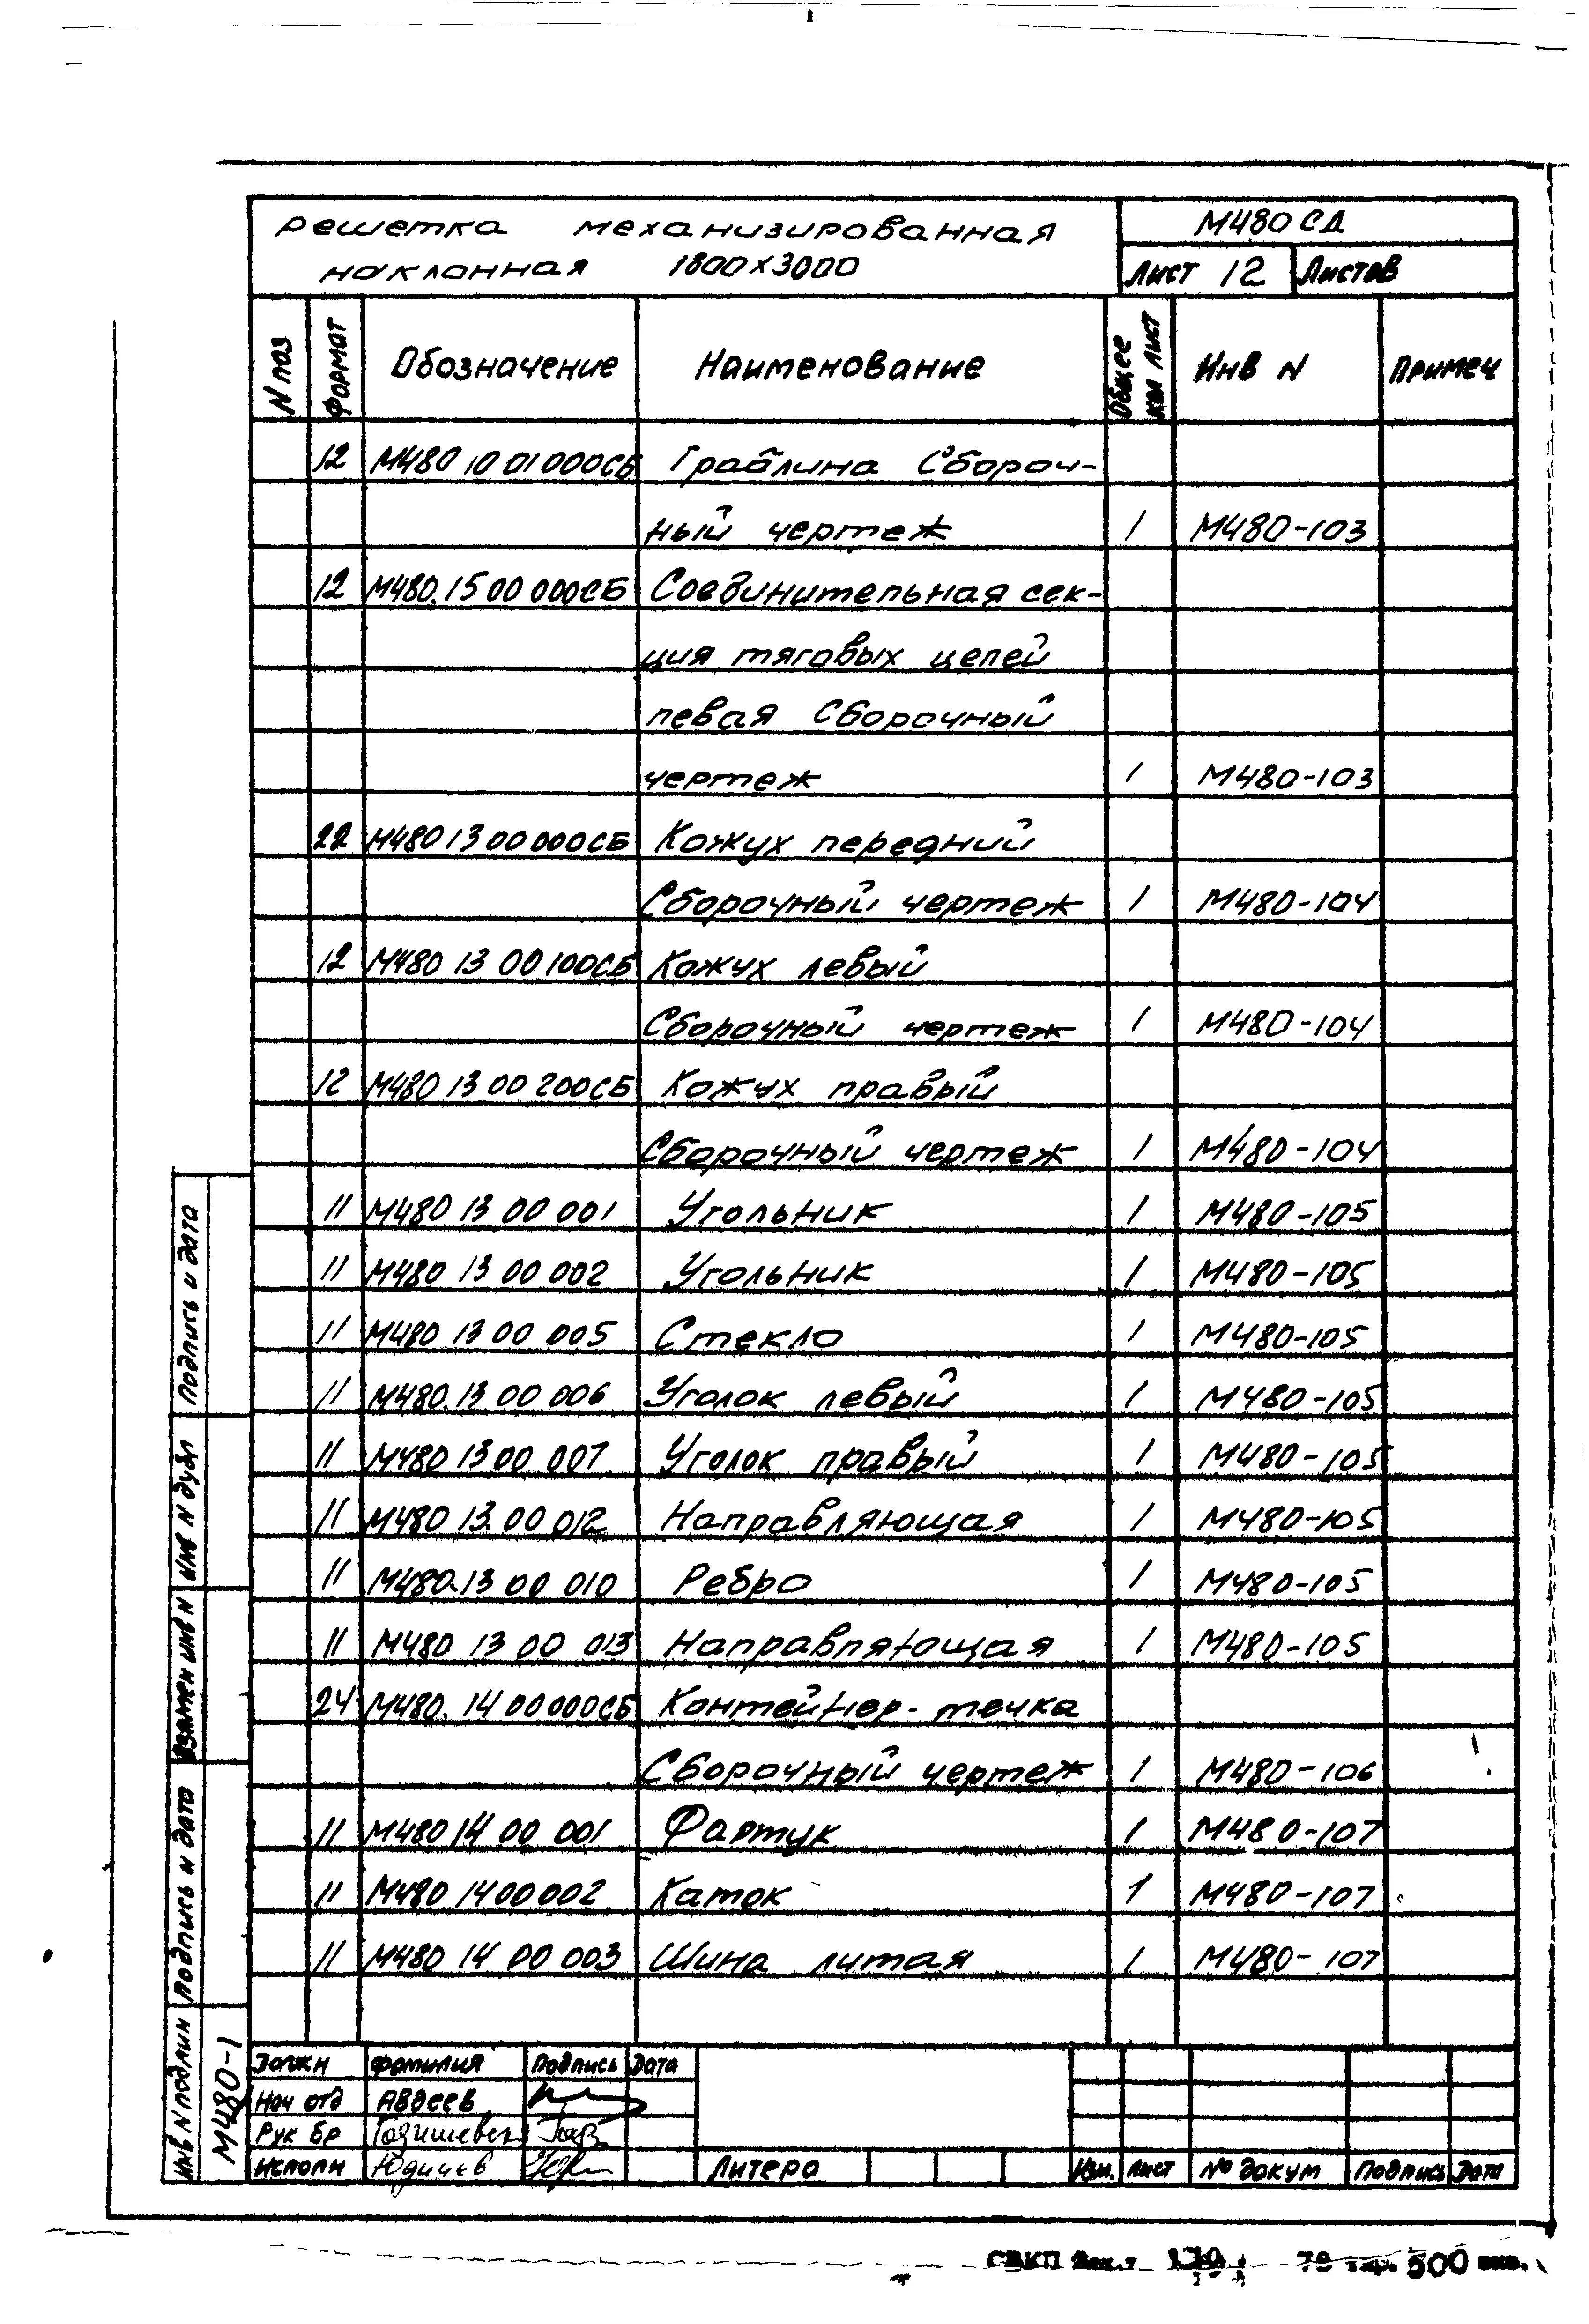 решетка механизированная
наклонная 1800×3000
М480СД
Лист 12 Листов
N поз Формат Обозначение Наименование Общее кол лист Инв N Примеч
12 М480 10 01 000СБ Граблина Сбороч-
ный чертеж 1 М480-103
12 М480.15 00 000СБ Соединительная сек-
ция тяговых цепей
левая Сборочный
чертеж 1 М480-103
22 М480 13 00 000СБ Кожух передний
Сборочный чертеж 1 М480-104
12 М480 13 00 100СБ Кожух левый
Сборочный чертеж 1 М480-104
12 М480 13 00 200СБ Кожух правый
Сборочный чертеж 1 М480-104
11 М480 13 00 001 Угольник 1 М480-105
11 М480 13 00 002 Угольник 1 М480-105
11 М480 13 00 005 Стекло 1 М480-105
11 М480.13 00 006 Уголок левый 1 М480-105
11 М480 13 00 007 Уголок правый 1 М480-105
11 М480 13.00 012 Направляющая 1 М480-105
11 М480.13 00 010 Ребро 1 М480-105
11 М480 13 00 013 Направляющая 1 М480-105
24 М480. 14 00 000СБ Контейнер-течка
Сборочный чертеж 1 М480-106
11 М480 14 00 001 Фартук 1 М480-107
11 М480 14 00 002 Каток 1 М480-107
11 М480 14 00 003 Шина литая 1 М480-107
Подпись и дата
Инв N дубл
Взамен инв N
Подпись и дата
Инв N подлин
М480-1
Должн Фамилия Подпись Дата
Нач отд Авдеев
Рук бр
Исполн
Литера
Изм. Лист № докум Подпись Дата
500